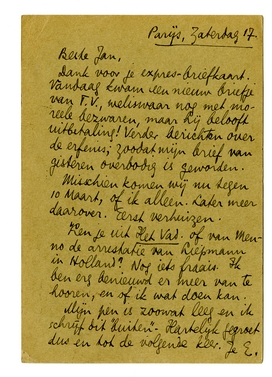 Parijs, Zaterdag 17
Beste Jan,
Dank voor je expres-briefkaart.
Vandaag kwam een nieuw briefje
van T.V., weliswaar nog met mo-
reele bezwaren, maar hij belooft
uitbetaling! Verder berichten over
de erfenis; zoodat mijn brief van
gisteren overbodig is geworden.
Misschien komen wij nu tegen
10 Maart, of ik alleen. Later meer
daarover. Eerst verhuizen.
Ken je uit Het Vad. of van Men-
no de arrestatie van Liepmann
in Holland? Nog iets fraais. Ik
ben erg benieuwd er meer van te
hooren, en of ik wat doen kan.
Mijn pen is zoowat leeg en ik
schrijf dit "buiten". Hartelijk gegroet
dus en tot de volgende keer. Je E.